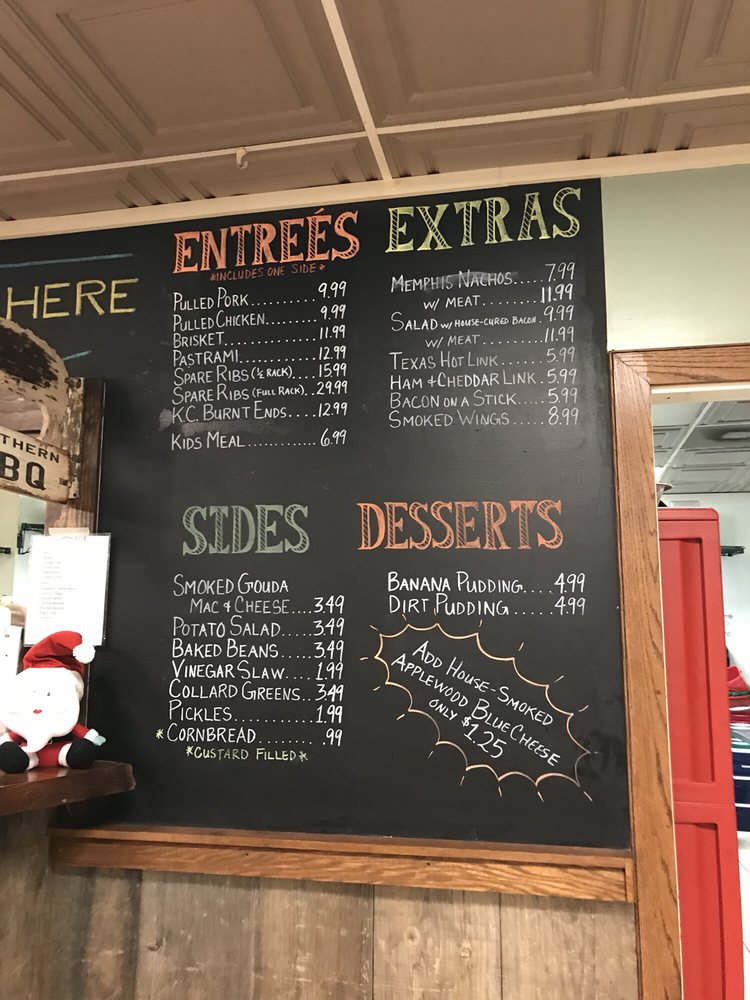 HERE
THERN
BQ
ENTREÉS
*INCLUDES ONE SIDE*
PULLED PORK.......... 9.99
PULLED CHICKEN........ 9.99
BRISKET............... 11.99
PASTRAMI............. 12.99
SPARE RIBS (½ RACK).... 15.99
SPARE RIBS (FULL RACK).. 29.99
K.C. BURNT ENDS.... 12.99
KIDS MEAL............ 6.99
EXTRAS
MEMPHIS NACHOS..... 7.99
W/ MEAT....... 11.99
SALAD W/ HOUSE-CURED BACON. 9.99
W/ MEAT....... 11.99
TEXAS HOT LINK...... 5.99
HAM & CHEDDAR LINK. 5.99
BACON ON A STICK.... 5.99
SMOKED WINGS..... 8.99
SIDES
SMOKED GOUDA
MAC & CHEESE.... 3.49
POTATO SALAD..... 3.49
BAKED BEANS...... 3.49
VINEGAR SLAW.... 1.99
COLLARD GREENS.. 3.49
PICKLES............ 1.99
*CORNBREAD......... .99
*CUSTARD FILLED*
DESSERTS
BANANA PUDDING.... 4.99
DIRT PUDDING...... 4.99
ADD HOUSE-SMOKED
APPLEWOOD BLUE CHEESE
ONLY $1.25